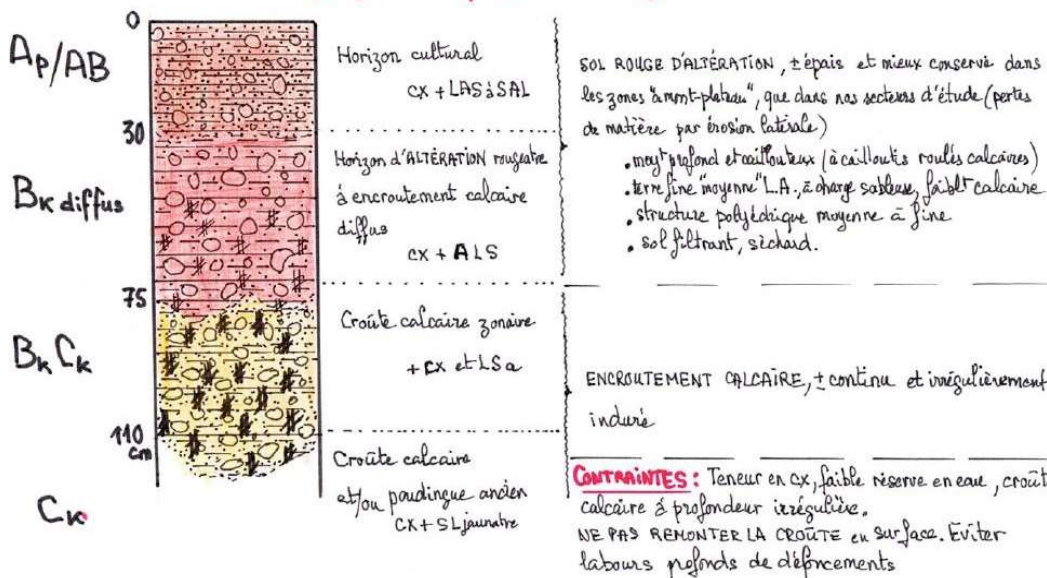 0
Ap/AB
Horizon cultural
cx + LAS à SAL
30
Bk diffus
Horizon d'ALTÉRATION rougeatre
à encroutement calcaire
diffus
cx + ALS
75
Bk Ck
Croûte calcaire zonaire
+ cx et LSa
110
cm
Ck
Croûte calcaire
et/ou poudingue ancien
cx + SL jaunatre
SOL ROUGE D'ALTÉRATION, ± épais et mieux conservé dans
les zones "amont-plateau", que dans nos secteurs d'étude (pertes
de matière par érosion latérale)
• moyt profond et caillouteux (à cailloutis roulés calcaires)
• terre fine "moyenne" L.A., à charge sableuse, faiblt calcaire
• structure polyédrique moyenne à fine
• sol filtrant, séchard.
ENCROUTEMENT CALCAIRE, ± continu et irrégulièrement
induré
CONTRAINTES : Teneur en cx, faible réserve en eau, croûte
calcaire à profondeur irrégulière.
NE PAS REMONTER LA CROÛTE en surface. Eviter
labours profonds de défoncements